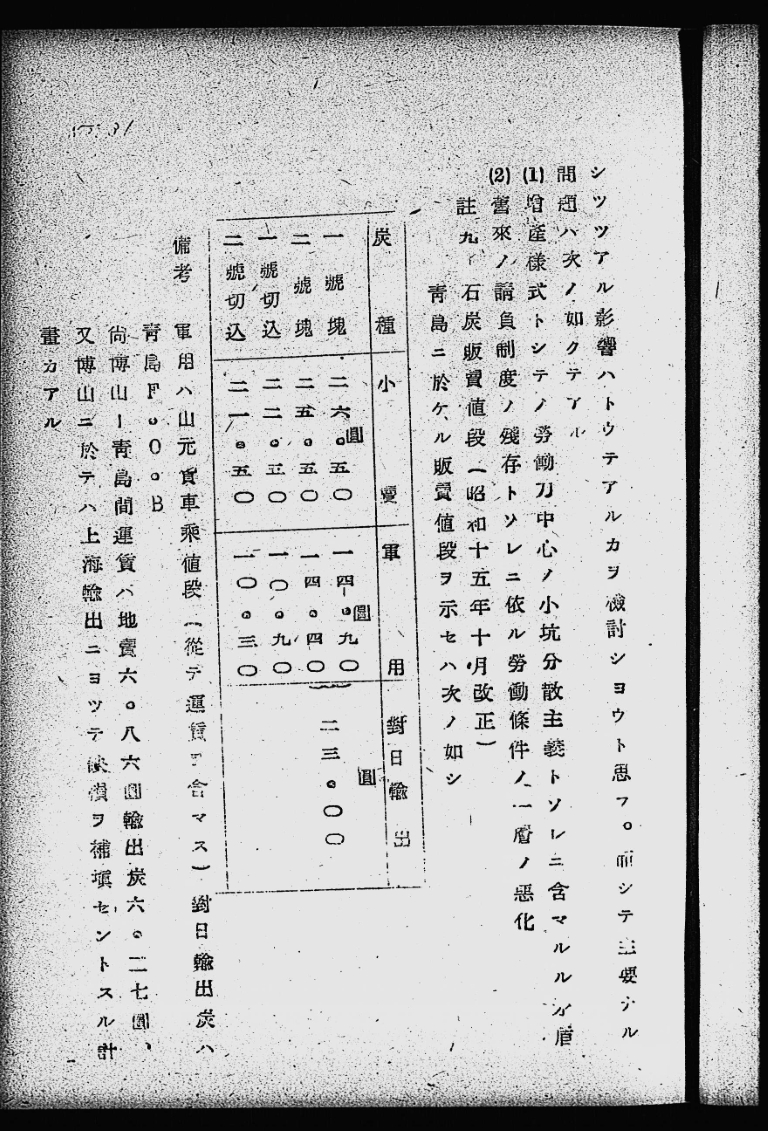 シツツアル影響ハトウテアルカヲ檢討シヨウト思フ。而シテ主要ナル
問題ハ次ノ如クテアル
(1)增產樣式トシテノ勞働力中心ノ小坑分散主義トソレニ含マルル矛盾
(2)舊來ノ請負制度ノ殘存トソレニ依ル勞働條件ノ一層ノ惡化
註九、石炭販賣値段(昭和十五年十月改正)
靑島ニ於ケル販賣値段ヲ示セハ次ノ如シ
炭種 小賣 軍用 對日輸出
一號塊 二六。五〇圓 一四。九〇圓 二三。〇〇圓
二號塊 二五。五〇 一四。四〇
一號切込 二二。五〇 一〇。九〇
二號切込 二一。五〇 一〇。三〇
備考 軍用ハ山元貨車乘値段(從テ運賃ヲ含マス)對日輸出炭ハ
靑島F。O。B
尙博山ー靑島間運賃ハ地賣六。八六圓輸出炭六。二七圓、
又博山ニ於テハ上海輸出ニヨツテ缺損ヲ補塡セントスル計
畫カアル